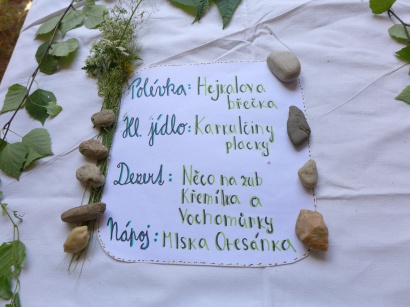 Polévka: Hejkalova
břečka
Hl. jídlo: Karkulčiny
placky
Dezert: Něco na zub
Křemílka a
Vochomůrky
Nápoj: Mlska Otesánka